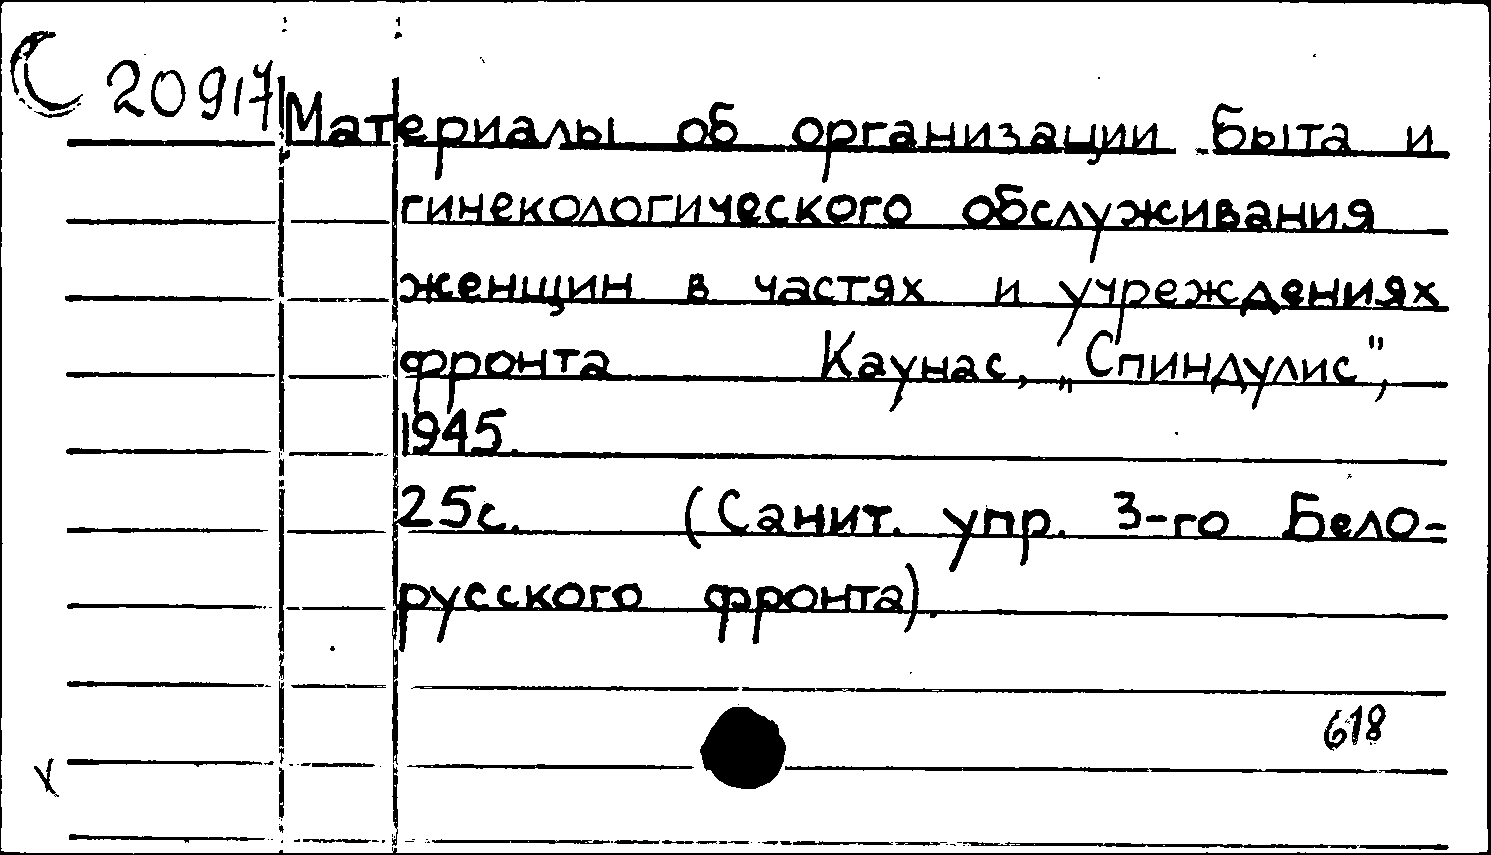 С 20917
Материалы об организации быта и
гинекологического обслуживания
женщин в частях и учреждениях
фронта Каунас, „Спиндулис",
1945.
25с. (Санит. упр. 3-го Бело=
русского фронта).
618